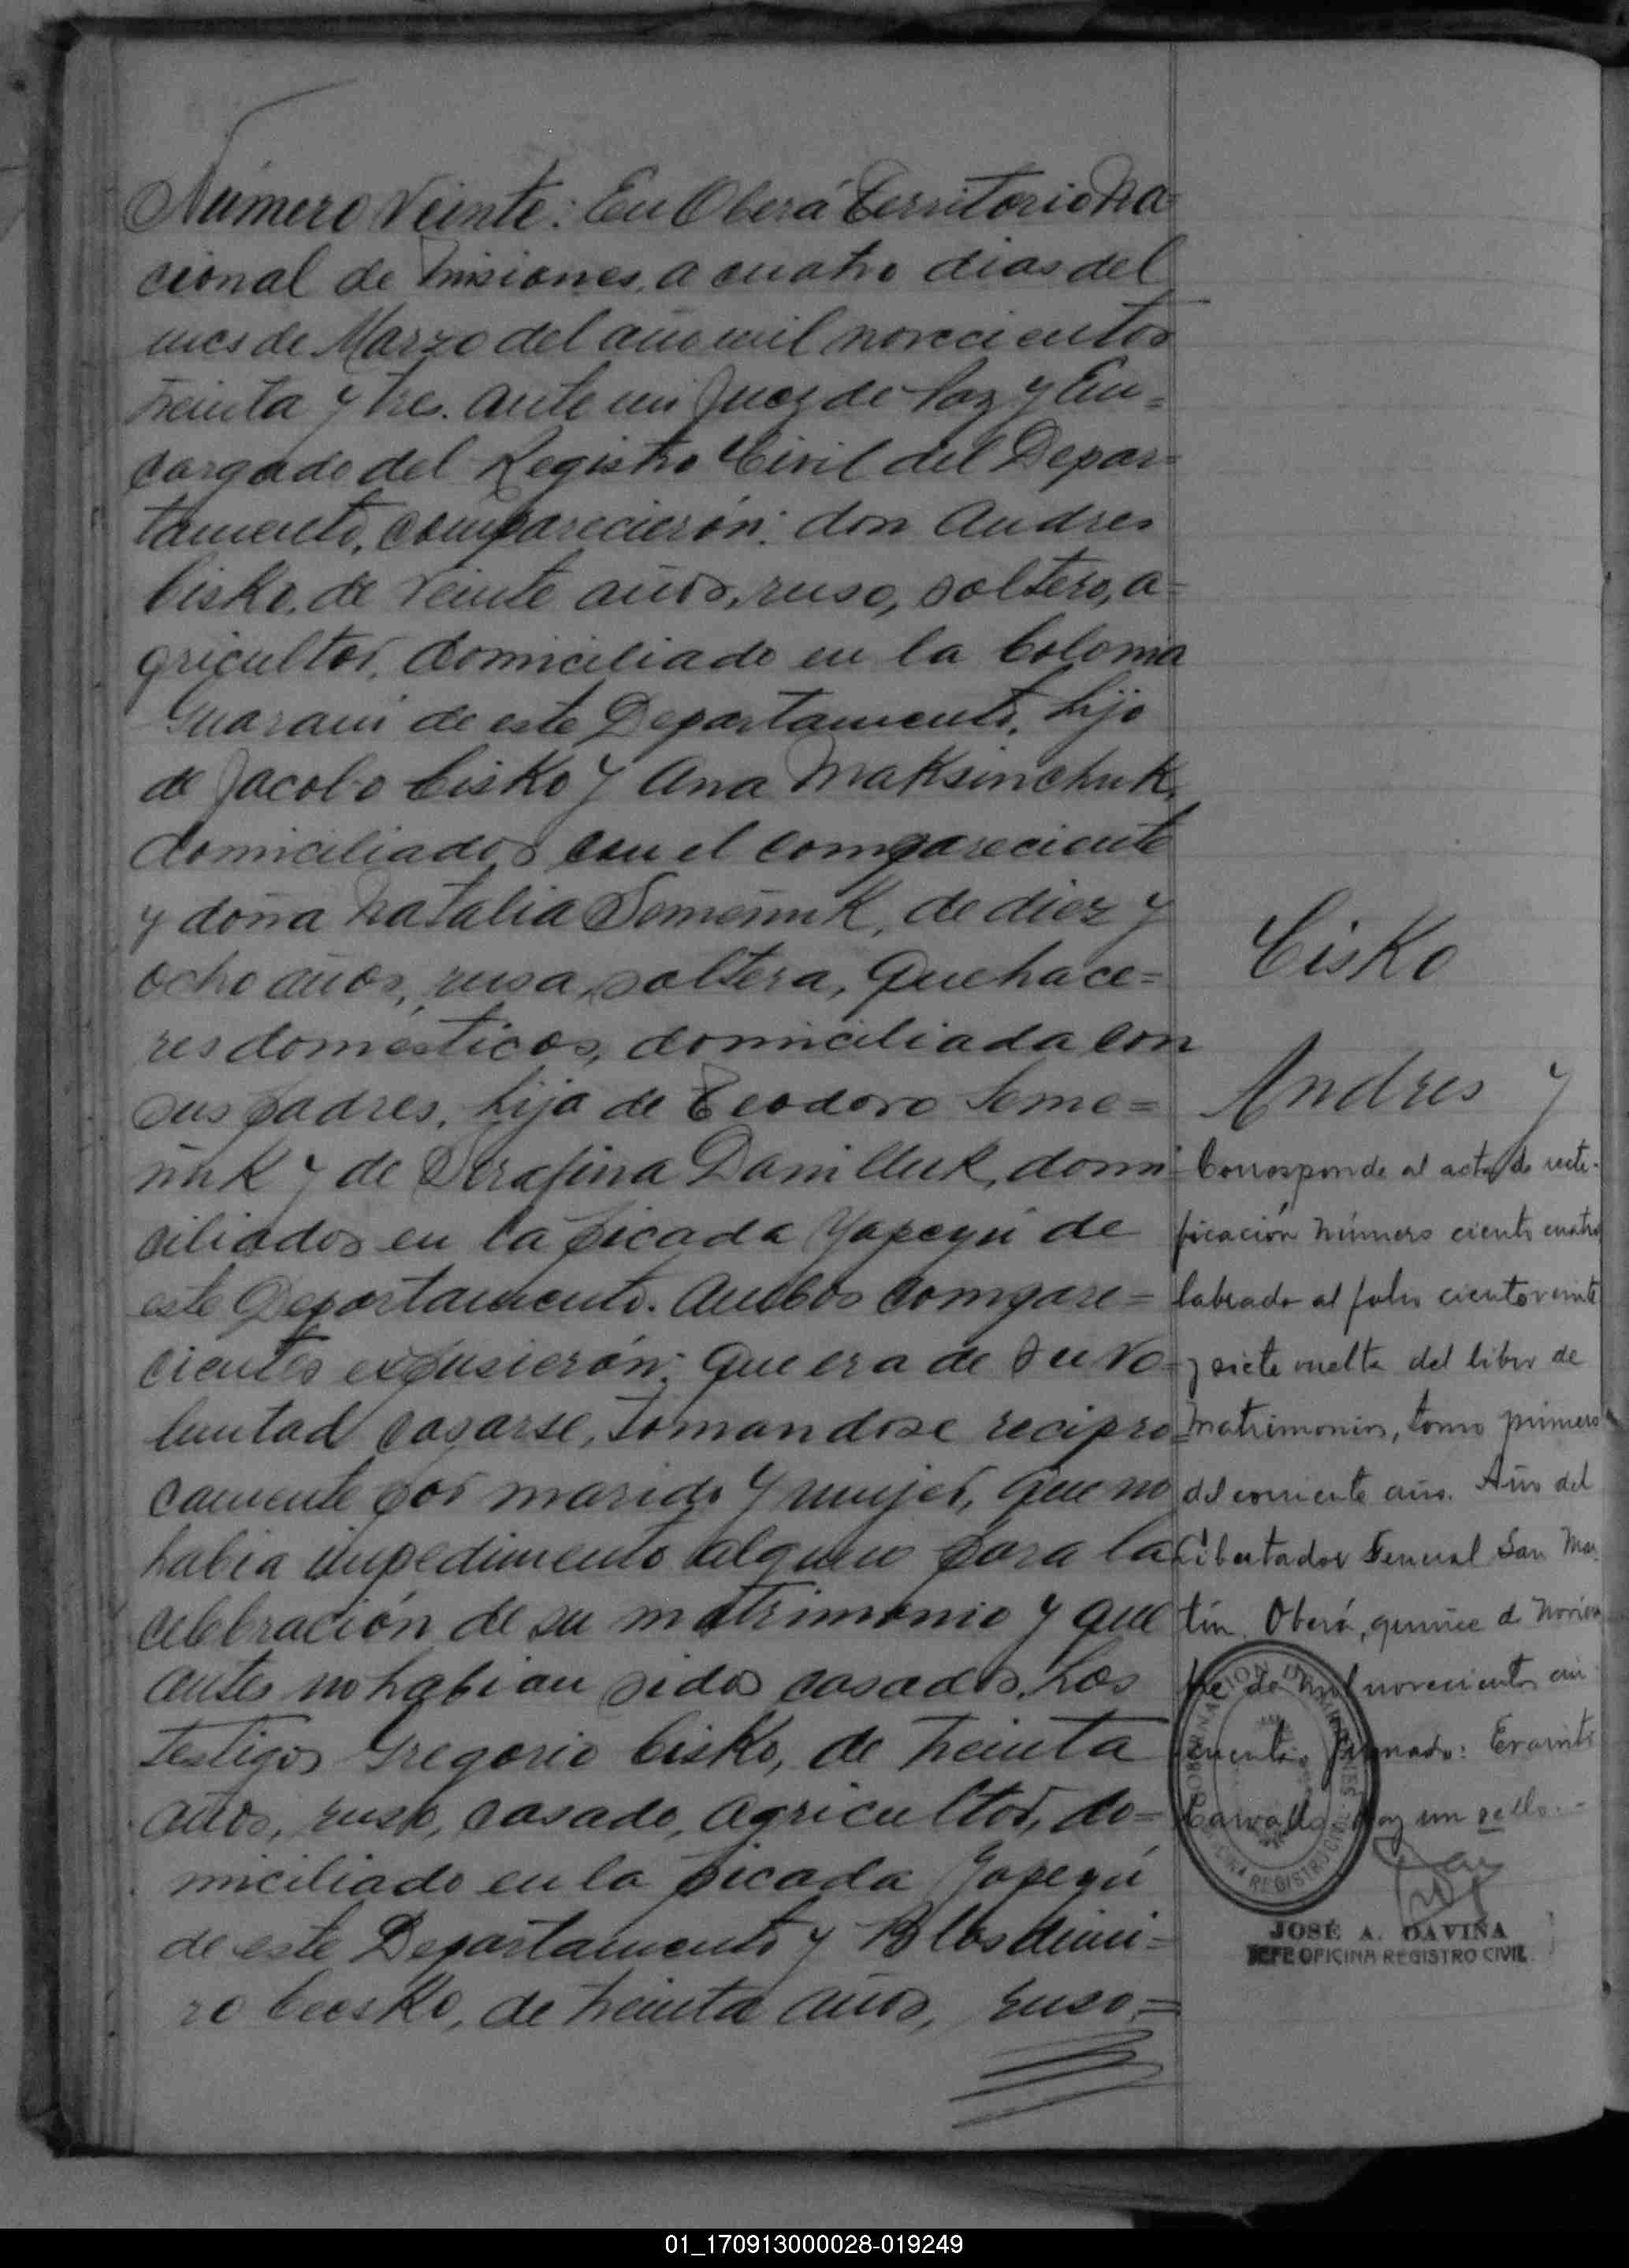 Número Veinte: En Oberá Territorio Na=
cional de Misiones, a cuatro dias del
mes de Marzo del año mil novecientos
treinta y tres. ante mi Juez de Paz y En=
cargado del Registro Civil del Depar=
tamento, comparecierón: don Andres
Cisko, de veinte años, ruso, soltero, a=
gricultor, domiciliado en la Colonia
Guarani de este Departamento, hijo
de Jacobo Cisko y Ana Maksinchuk,
domiciliados con el compareciente
y doña Natalia Semeniuk, de diez y
ocho años, rusa, soltera, Quehace=
res domésticos, domiciliada con
sus padres, hija de Teodoro Seme=
niuk y de Serafina Danilluk, domi
ciliados en la picada Yapeyú de
este Departamento. Ambos compare=
cientes expusierón: Que era de su Vo=
luntad casarse, tomandose recipro=
camente por marido y mujer, que no
habia impedimento alguno para la
celebración de su matrimonio y que
antes no habian sidos casados. Los
testigos Gregorio Cisko, de treinta
años, ruso, casado, agricultor, do=
miciliado en la picada Yapeyú
de este Departamento y Blosdimi=
ro Ceosko, de treinta años, ruso,=
Cisko
Andres y
Corresponde al acta de recti-
ficación número ciento cuatro
labrado al folio ciento veinte
y siete vuelta del libro de
Matrimonios, tomo primero
del corriente año. Año del
Libertador General San Mar
tín. Oberá, quince de Noviem
bre de mil novecientos cin
cuenta. Firmado: Evaristo
Carvallo. Hay un sello.-
GOBERNACION DE MISIONES
OFICINA REGISTRO CIVIL
JOSÉ A. DAVIÑA
JEFE OFICINA REGISTRO CIVIL
01_170913000028-019249